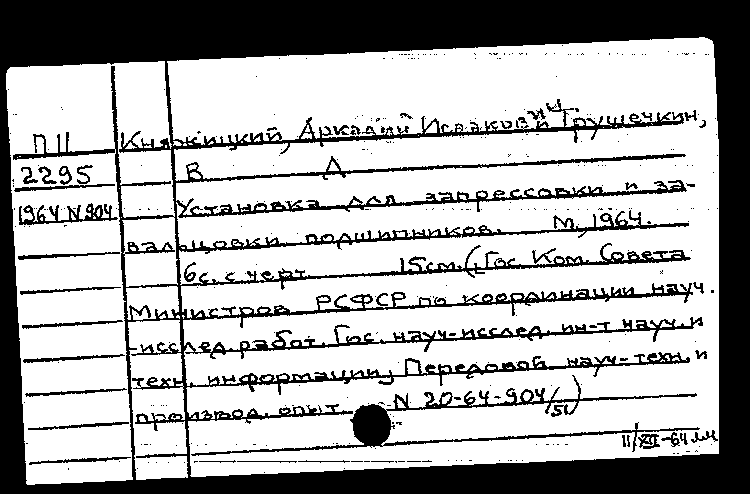 П11 Княжицкий, Аркадий Исаакович и Трушечкин,
2295 В Д
1964 N 904 Установка для запрессовки и за-
вальцовки подшипников. М., 1964.
6с. с черт. 15см. (Гос Ком. Совета
Министров РСФСР по координации науч.
-исслед. работ. Гос. науч-исслед. ин-т науч. и
техн. информации, Передовой науч-техн. и
производ. опыт. N 20-64-904/51)
11/XII-64